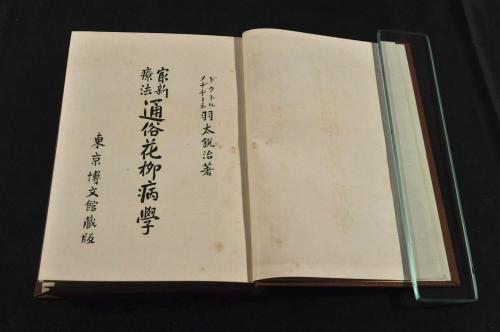 ドクトル
メヂチーネ
羽太鋭治著
㝡新
療法
通俗花柳病學
東京博文館蔵版